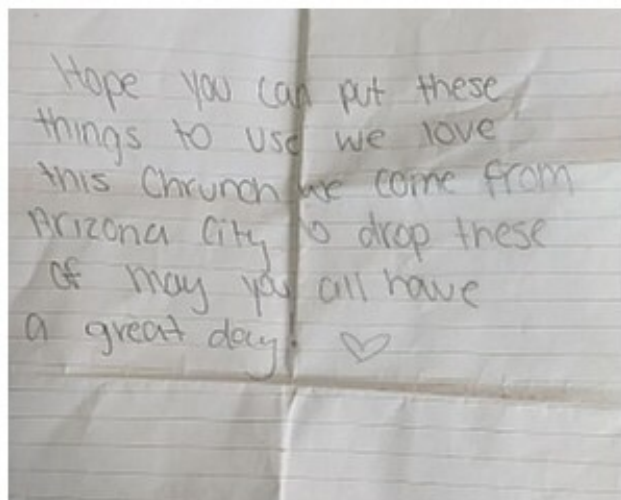 Hope you can put these
things to use we love
this Chrunch we come from
Arizona City to drop these
of may you all have
a great day! ♡